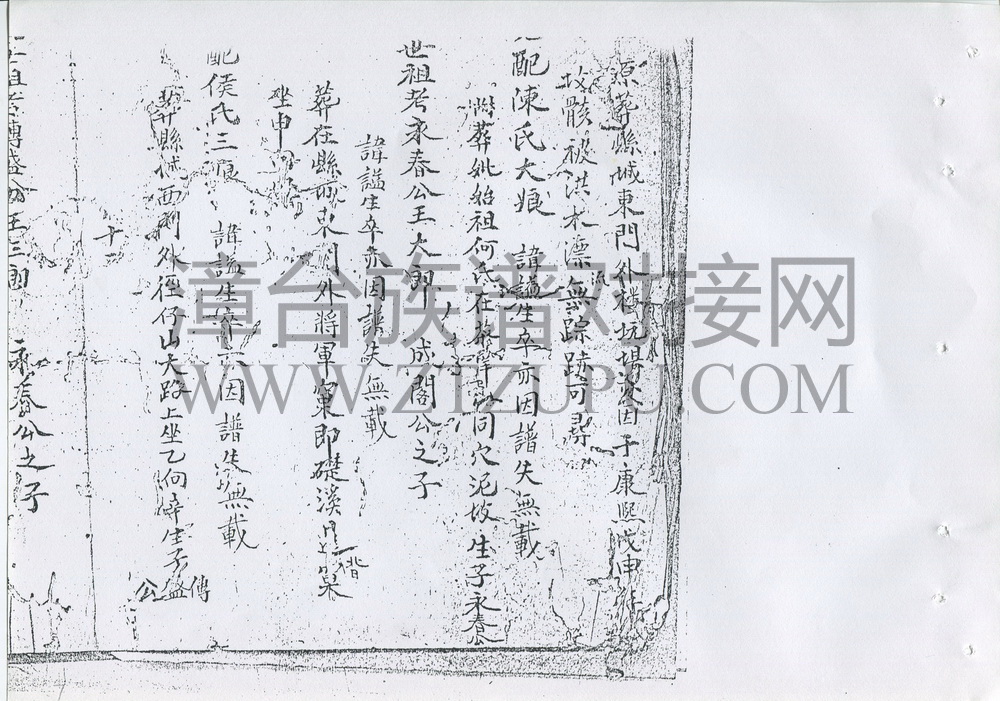 原葬縣城東門外楼坑場後因于康熙戊申
故骸被洪水漂流無踪跡可尋
配陳氏大娘 諱謚生卒亦因譜失無載
附葬妣始祖何氏在 同穴泥坟生子永春
世祖考永春公王大郎 成閣公之子
諱謚生卒亦因譜失無載
葬在縣 東門外將軍窠即礎溪
坐申
配侯氏三娘 諱謚生卒亦因譜失無載
葬縣城西 外徑仔山大路上坐乙向辛生子傳盛公
十一
祖考傳盛公王三 永春公之子
漳台族谱对接网
WWW.ZTZUPU.COM